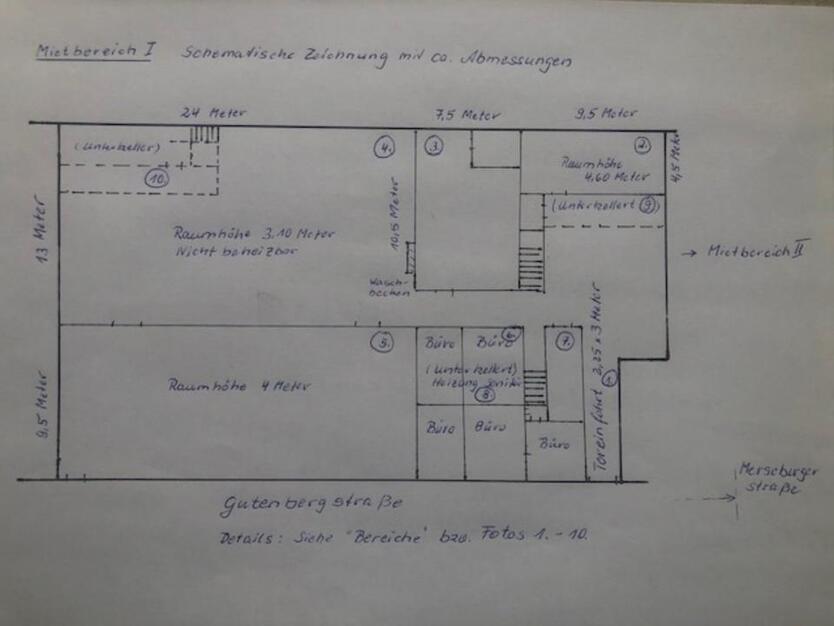 Mietbereich I Schematische Zeichnung mit ca. Abmessungen
24 Meter 7,5 Meter 9,5 Meter
(Unterkeller)
10.
4.
3.
2.
Raumhöhe
4,60 Meter
4,5 Meter
(Unterkellert 9)
13 Meter
Raumhöhe 3,10 Meter
Nicht beheizbar
10,5 Meter
Wasch-
becken
→ Mietbereich II
5.
Büro
Büro
6.
7.
(Unterkellert)
Heizung Sanitär
8.
Raumhöhe 4 Meter
9,5 Meter
Büro
Büro
Büro
Toreinfahrt 2,25 x 3 Meter
1.
Merseburger
straße
Gutenbergstraße
Details: Siehe "Bereiche" bzw. Fotos 1. - 10.